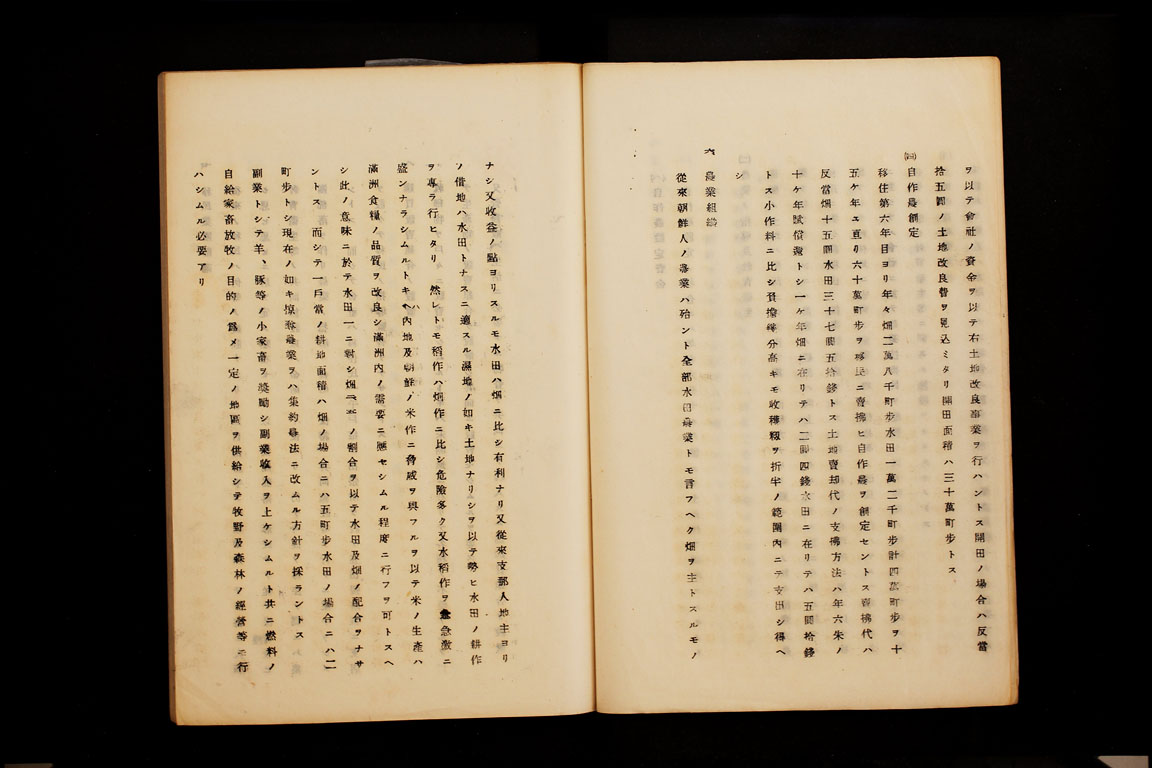 ヲ以テ會社ノ資金ヲ以テ右土地改良事業ヲ行ハントス開田ノ場合ハ反當
拾五圓ノ土地改良費ヲ見込ミタリ開田面積ハ三十萬町步トス
㈢ 自作農創定
移住第六年目ヨリ年々畑二萬八千町步水田一萬二千町步計四萬町步ヲ十
五ケ年ニ亘リ六十萬町步ヲ移民ニ賣拂ヒ自作農ヲ創定セントス賣拂代ハ
反當畑十五圓水田三十七圓五拾錢トス土地賣却代ノ支拂方法ハ年六朱ノ
十ケ年賦償還トシ一ケ年畑ニ在リテハ二圓四錢水田ニ在リテハ五圓拾錢
トス小作料ニ比シ負擔幾分高キモ收穫籾ヲ折半ノ範圍內ニテ支出シ得ヘ
シ
六 農業組織
從來朝鮮人ノ農業ハ殆ント全部水田農業トモ言フヘク畑ヲ主トスルモノ
ナシ又收益ノ點ヨリスルモ水田ハ畑ニ比シ有利ナリ又從來支那人地主ヨリ
ノ借地ハ水田トナスニ適スル濕地ノ如キ土地ナリシヲ以テ勢ヒ水田ノ耕作
ヲ專ラ行ヒタリ 然レトモ稻作ハ畑作ニ比シ危險多ク又水稻作ヲ急激ニ
盛ンナラシムルトキハ內地及朝鮮ノ米作ニ脅威ヲ與フルヲ以テ米ノ生產ハ
滿洲食糧ノ品質ヲ改良シ滿洲內ノ需要ニ應セシムル程度ニ行フヲ可トスヘ
シ此ノ意味ニ於テ水田一ニ對シ畑ノ割合ヲ以テ水田及畑ノ配合ヲナサ
ントス 而シテ一戶當ノ耕地面積ハ畑ノ場合ニハ五町步水田ノ場合ニハ二
町步トシ現在ノ如キ掠奪農業ヲハ集約農法ニ改ムル方針ヲ採ラントス
副業トシテ羊、豚等ノ小家畜ヲ獎勵シ副業收入ヲ上ケシムルト共ニ燃料ノ
自給家畜放牧ノ目的ノ爲メ一定ノ地區ヲ供給シテ牧野及森林ノ經營等ニ行
ハシムル必要アリ